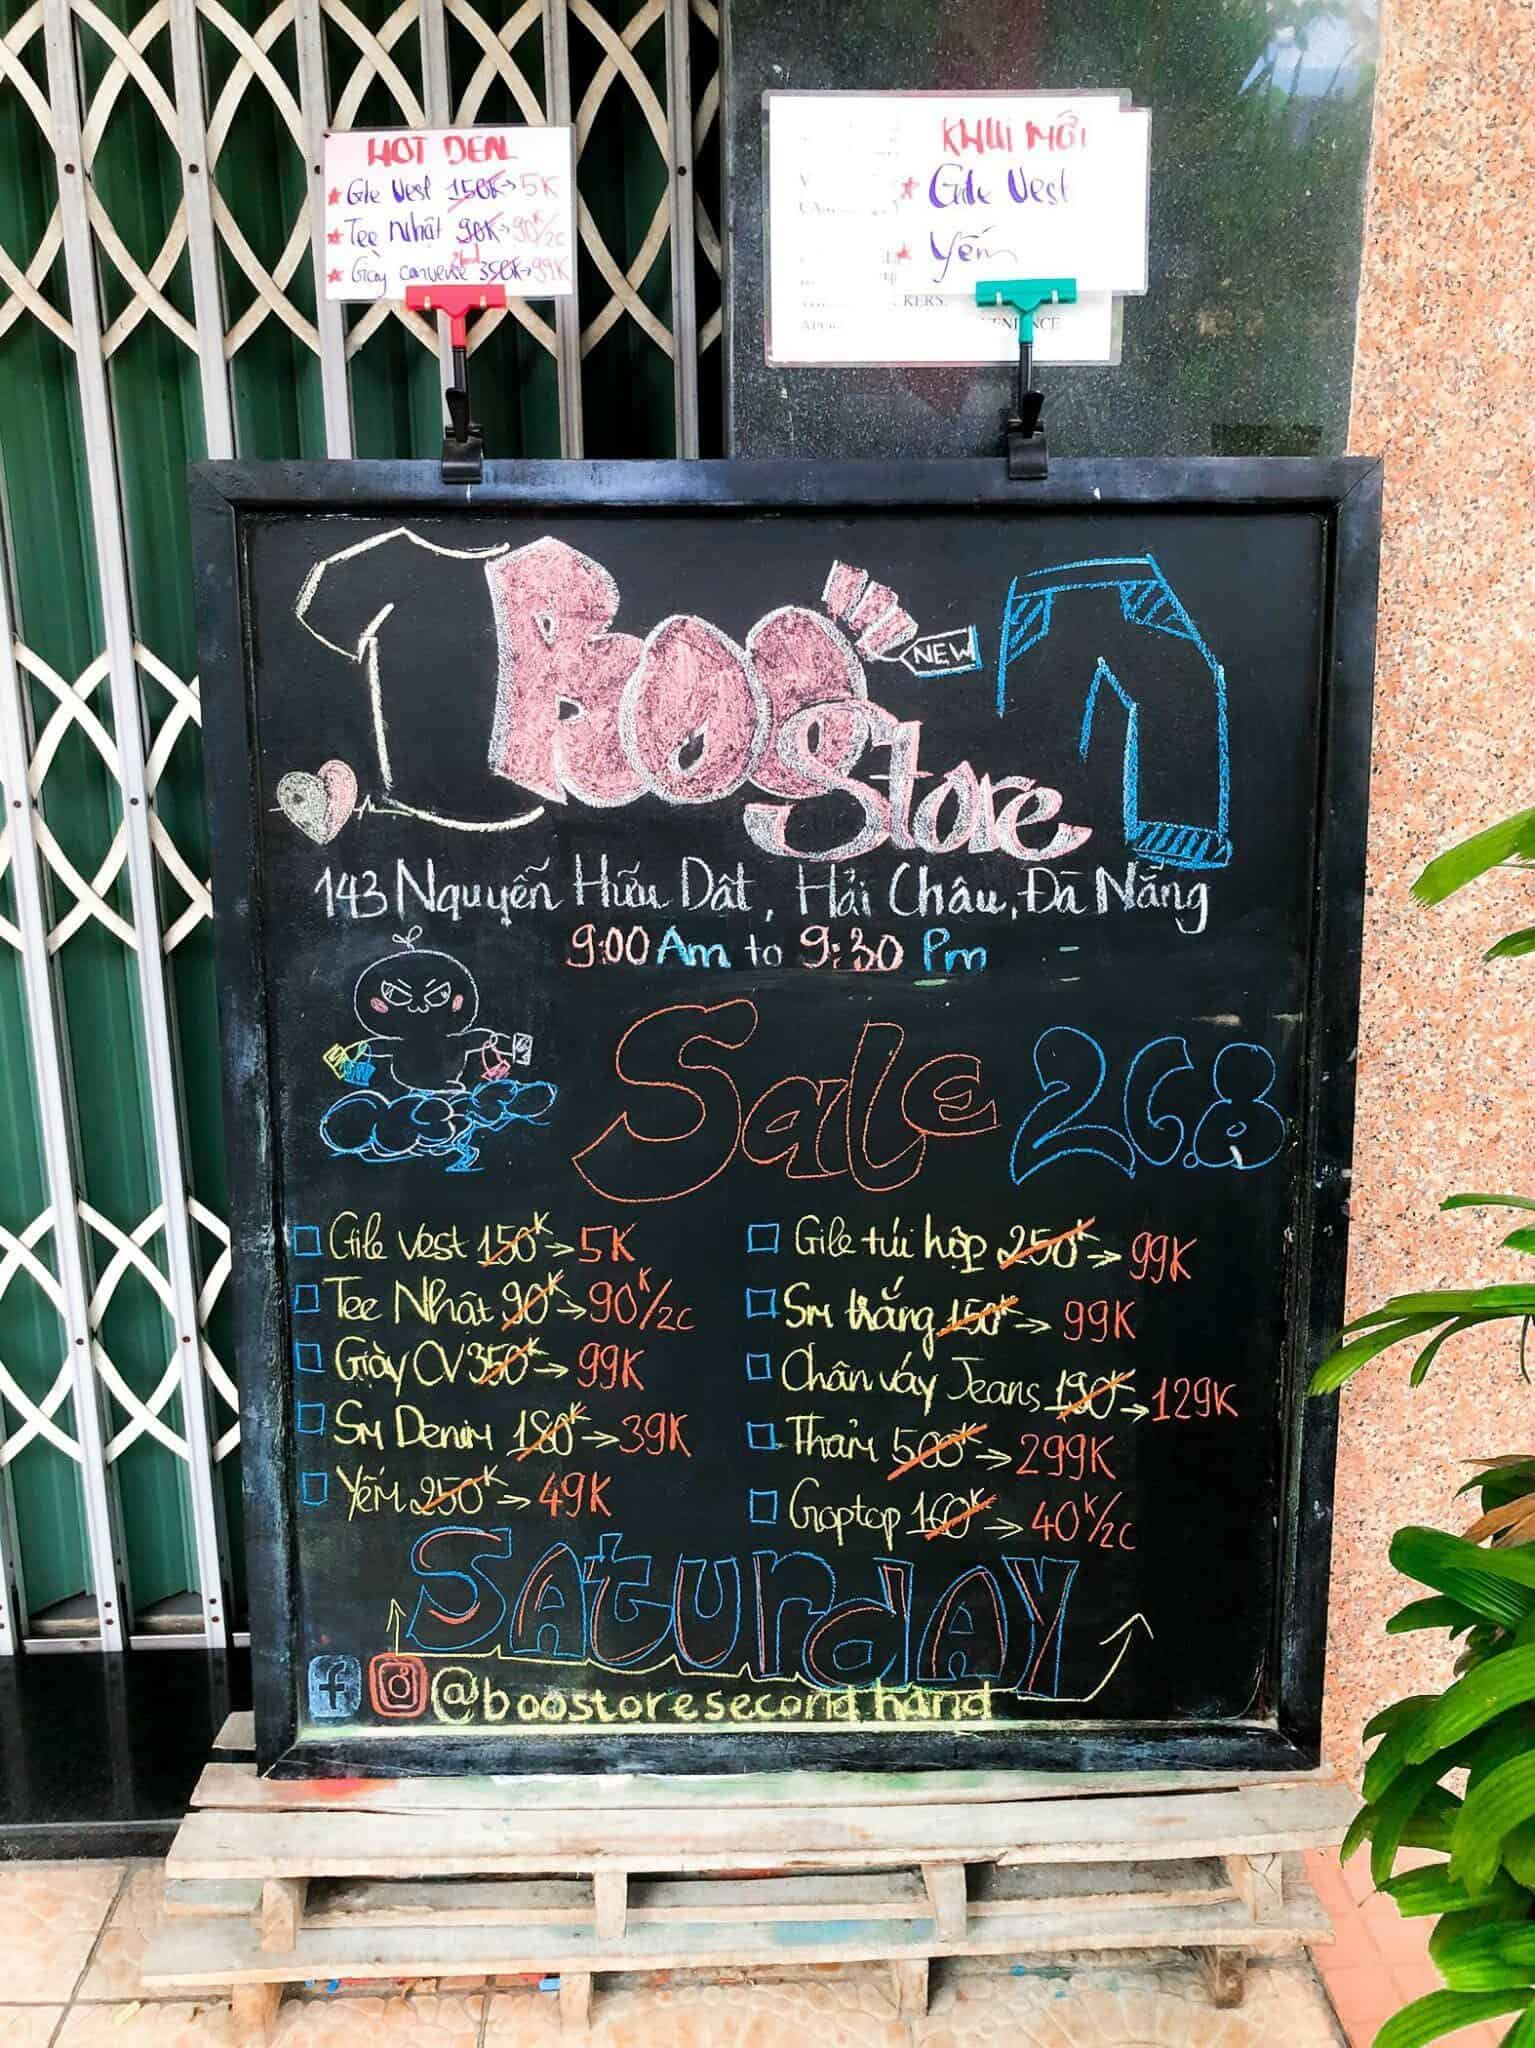 HOT DEAL
Gile Vest 150K→5K
Tee Nhật 90K→90K/2c
2hd
Giày converse 350K→99K
KHUI MỚI
Gile Vest
Yếm
KERS.
BOO Store
NEW
143 Nguyễn Hữu Dật, Hải Châu, Đà Nẵng
9:00 Am to 9:30 Pm
Sale 26.8
Gile Vest 150K→5K
Tee Nhật 90K→90K/2c
Giày CV 350K→99K
Sm Denim 180K→39K
Yếm 250K→49K
Gile túi hộp 250K→99K
Sm trắng 150K→99K
Chân váy Jeans 190K→129K
Thảm 500K→299K
Croptop 160K→40K/2c
SAturdAY
@boostoresecondhand